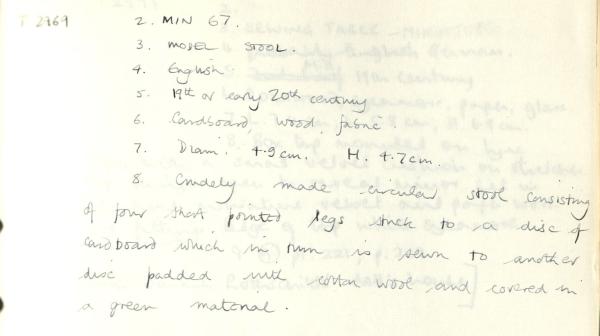 T 2969 2. MIN 67.
3. MODEL STOOL.
4. English
5. 19th or early 20th century
6. Cardboard, wood, fabric.
7. Diam. 4.9 cm. H. 4.7 cm.
8. Crudely made circular stool consisting
of four short pointed legs stuck to a disc of
cardboard which in turn is sewn to another
disc padded with cotton wool and covered in
a green material.